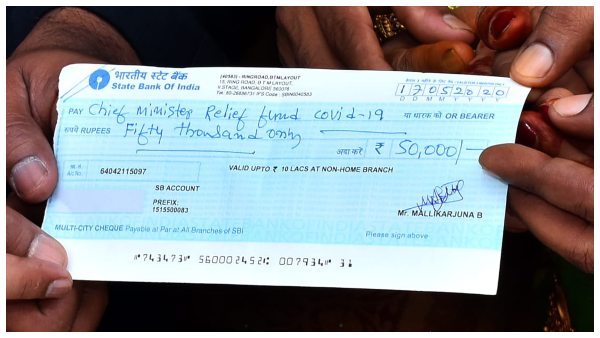 भारतीय स्टेट बैंक
State Bank Of India
(40583) - RINGROAD,BTMLAYOUT
V.STAGE, BANGALORE 560076
17052020
D D M M Y Y Y Y
PAY Chief Minister Relief fund covid-19 या धारक को OR BEARER
रुपये RUPEES Fifty thousand only
अदा करें ₹ 50,000/-
A/c No. 64042115097
VALID UPTO ₹ 10 LACS AT NON-HOME BRANCH
SB ACCOUNT
PREFIX:
1515500083
Mr. MALLIKARJUNA B
MULTI-CITY CHEQUE Payable at Par at All Branches of SBI
Please sign above
⑈743473⑈ 560002452⑆ 007934⑈ 31